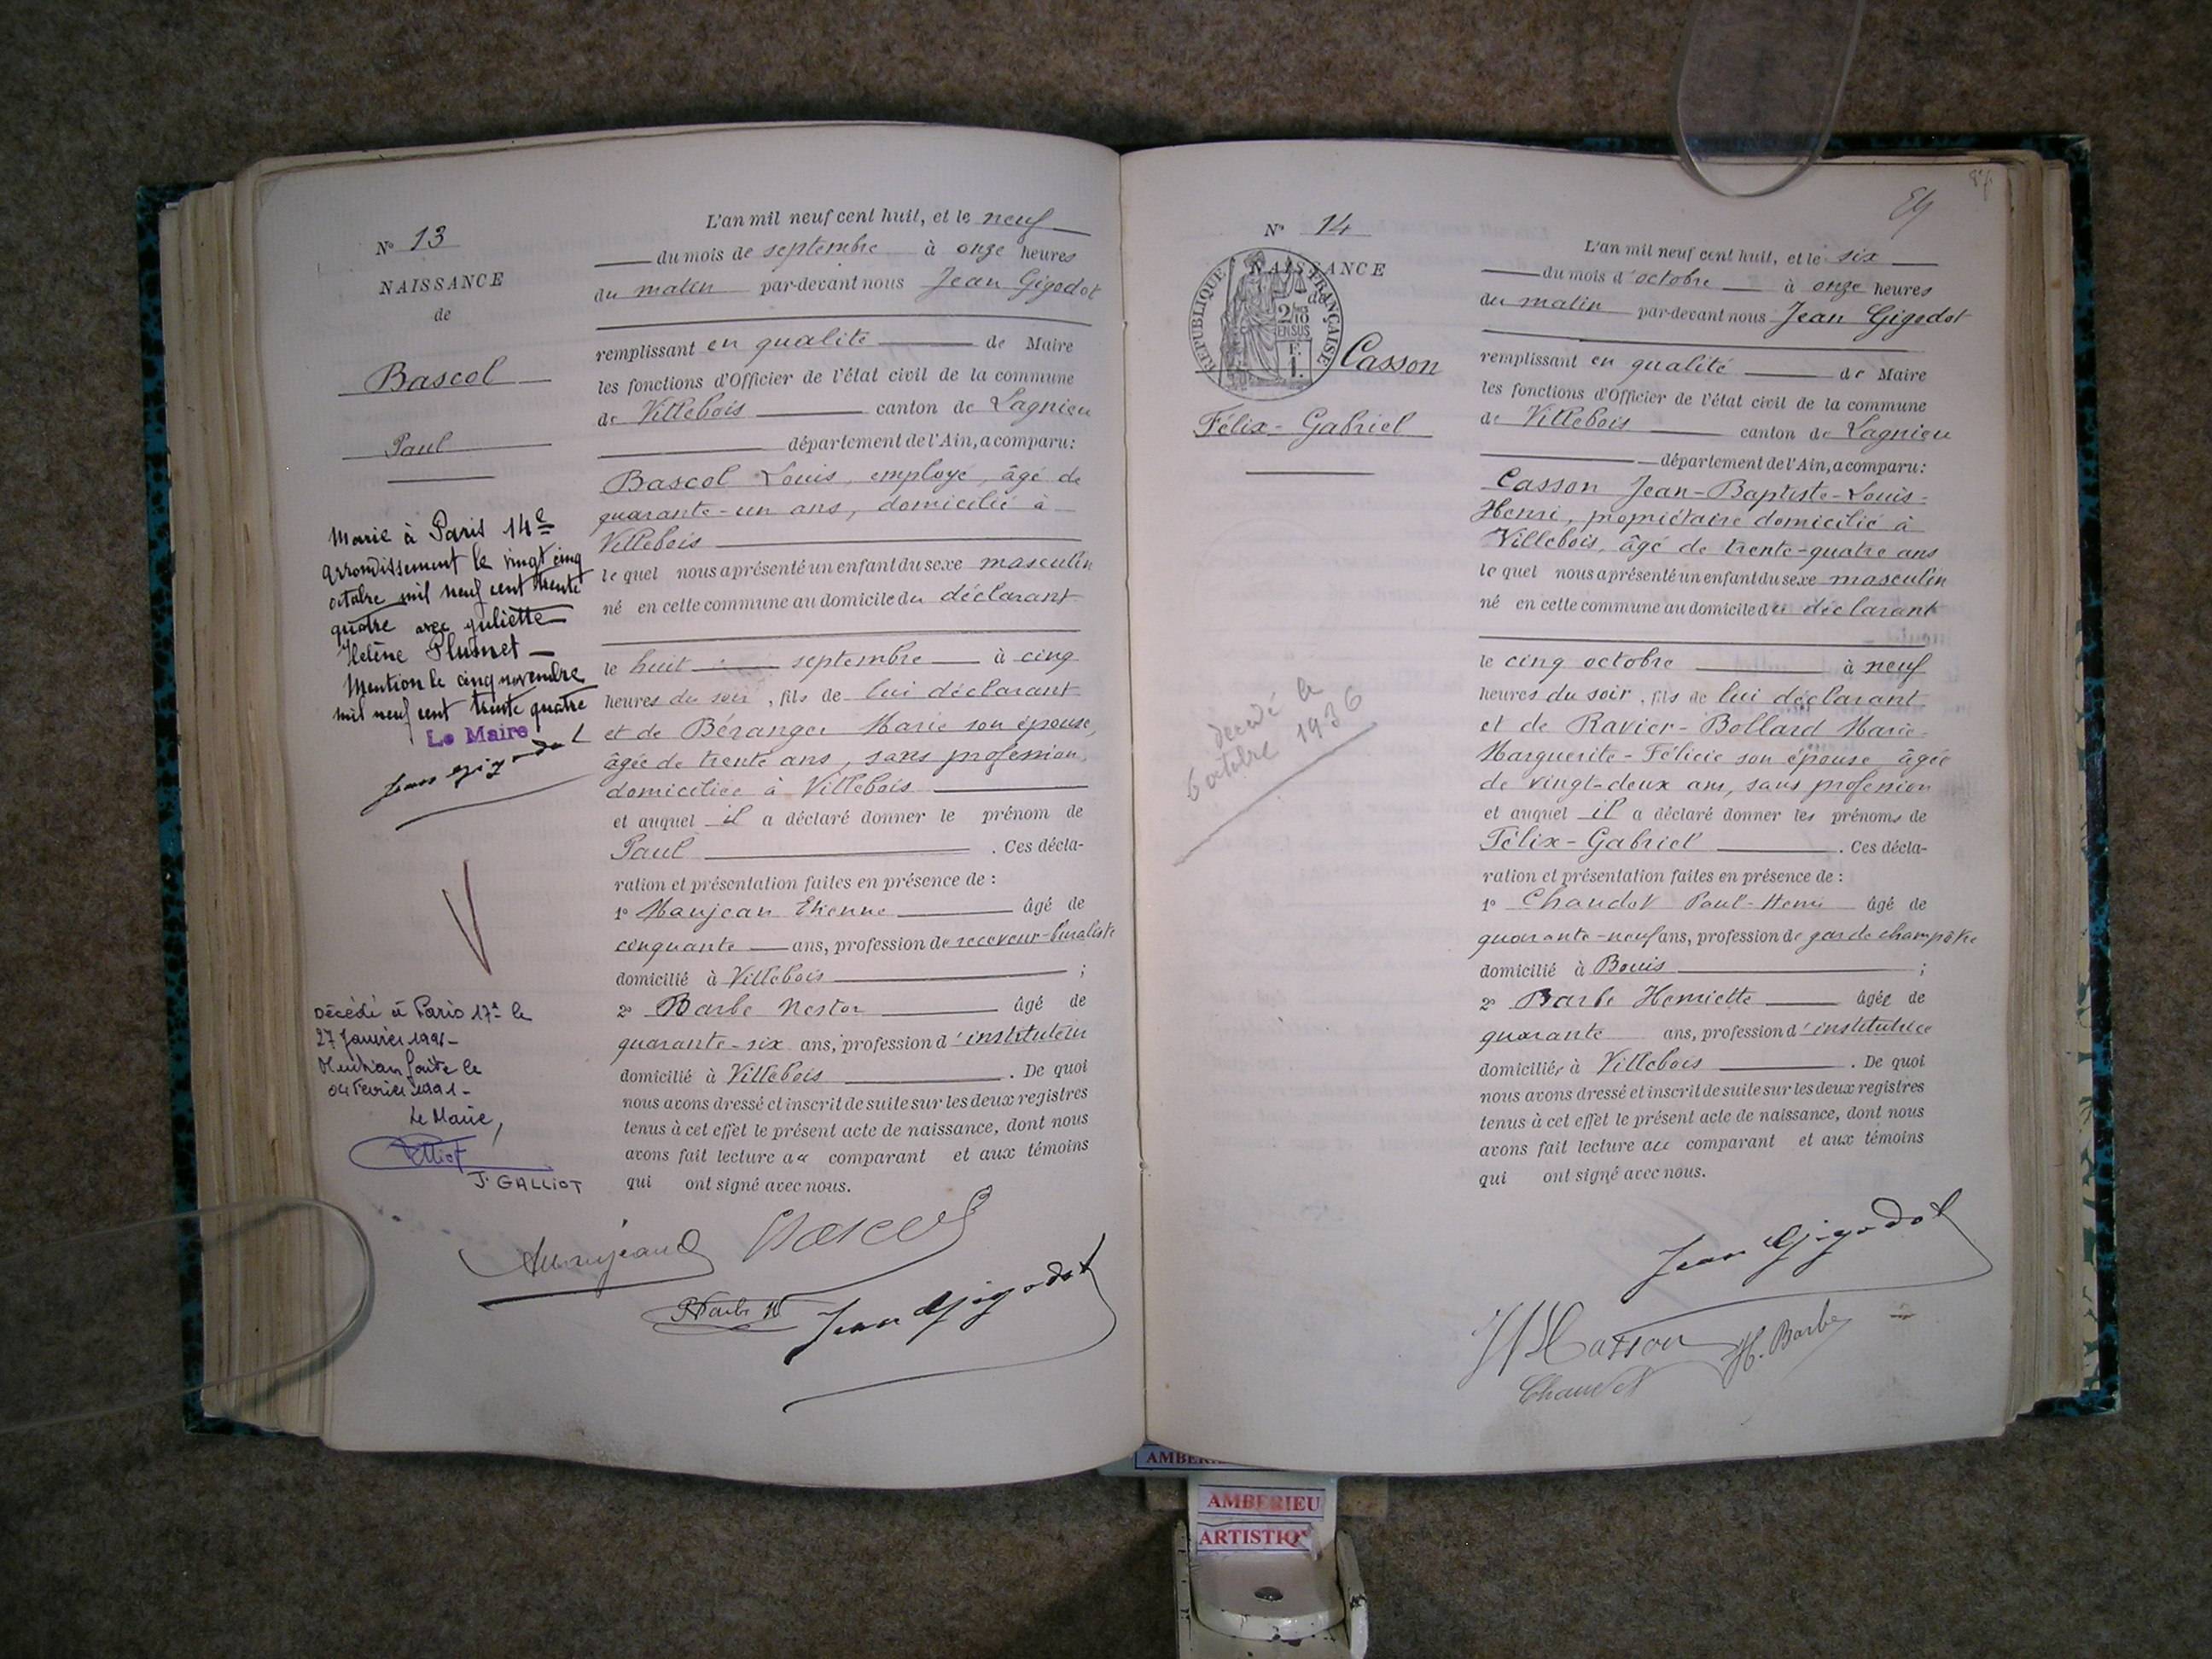 N° 13
NAISSANCE
de
Bascol
Paul
Marié à Paris 14e
arrondissement le vingt cinq
octobre mil neuf cent trente
quatre avec Juliette
Hélène Plumet
Mention le cinq novembre
mil neuf cent trente quatre
Le Maire
Jean Gigodot
Décédé à Paris 17e le
27 Janvier 1991
Mention faite le
04 Février 1991
Le Maire,
J. GALLIOT
L'an mil neuf cent huit, et le neuf
du mois de septembre à onze heures
du matin par-devant nous Jean Gigodot
remplissant en qualité de Maire
les fonctions d'Officier de l'état civil de la commune
de Villebois canton de Lagnieu
département de l'Ain, a comparu:
Bascol Louis, employé, âgé de
quarante-un ans, domicilié à
Villebois
le quel nous a présenté un enfant du sexe masculin
né en cette commune au domicile du déclarant
le huit septembre à cinq
heures du soir, fils de lui déclarant
et de Béranger Marie son épouse,
âgée de trente ans, sans profession,
domiciliée à Villebois
et auquel il a déclaré donner le prénom de
Paul . Ces décla-
ration et présentation faites en présence de :
1° Maujean Etienne âgé de
cinquante ans, profession de receveur-buraliste
domicilié à Villebois ;
2° Barbe Nestor âgé de
quarante-six ans, profession d'instituteur
domicilié à Villebois . De quoi
nous avons dressé et inscrit de suite sur les deux registres
tenus à cet effet le présent acte de naissance, dont nous
avons fait lecture au comparant et aux témoins
qui ont signé avec nous.
Maujean Bascol
Barbe N Jean Gigodot
87
N° 14
NAISSANCE
de
REPUBLIQUE FRANÇAISE
2/10
EN SUS
Casson
Félix-Gabriel
décédé le
6 octobre 1936
L'an mil neuf cent huit, et le six
du mois d'octobre à onze heures
du matin par-devant nous Jean Gigodot
remplissant en qualité de Maire
les fonctions d'Officier de l'état civil de la commune
de Villebois canton de Lagnieu
département de l'Ain, a comparu:
Casson Jean-Baptiste-Louis-
Henri, propriétaire domicilié à
Villebois, âgé de trente-quatre ans
le quel nous a présenté un enfant du sexe masculin
né en cette commune au domicile du déclarant
le cinq octobre à neuf
heures du soir, fils de lui déclarant
et de Ravier-Bollard Marie-
Marguerite-Félicie son épouse âgée
de vingt-deux ans, sans profession
et auquel il a déclaré donner les prénoms de
Félix-Gabriel . Ces décla-
ration et présentation faites en présence de :
1° Chaudet Paul-Henri âgé de
quarante-neuf ans, profession de garde champêtre
domicilié à Bouis ;
2° Barbe Henriette âgée de
quarante ans, profession d'institutrice
domiciliée à Villebois . De quoi
nous avons dressé et inscrit de suite sur les deux registres
tenus à cet effet le présent acte de naissance, dont nous
avons fait lecture au comparant et aux témoins
qui ont signé avec nous.
Jean Gigodot
Casson H. Barbe
Chaudet
AMBERIEU
ARTISTIQ